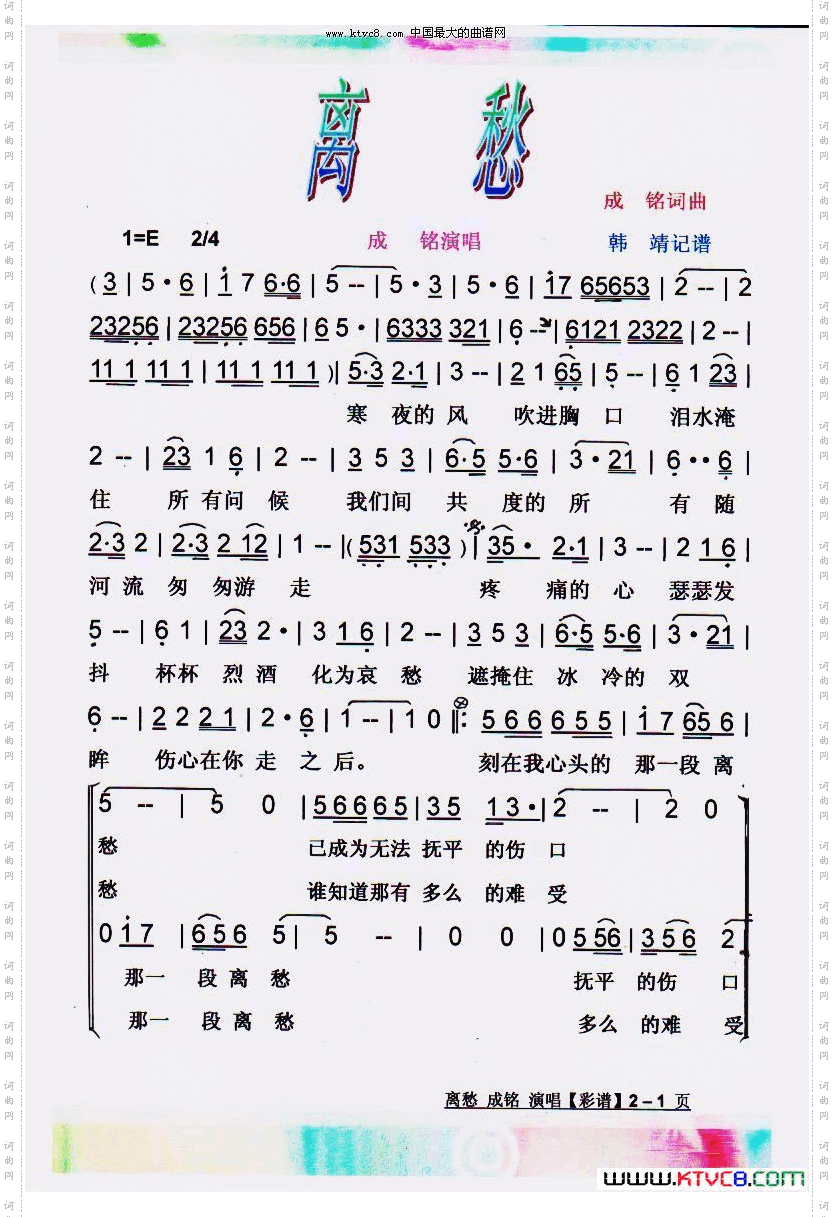 www.ktvc8.com 中国最大的曲谱网
离 愁
成 铭词曲
1=E 2/4 成 铭演唱 韩 靖记谱
( 3 | 5 · 6 | i 7 6·6 | 5 -- | 5 · 3 | 5 · 6 | i7 65653 | 2 -- | 2
23256 | 23256 656 | 6 5 · | 6333 321 | 6 -- | 6121 2322 | 2 -- |
11 1 11 1 | 11 1 11 1 )| 5·3 2·1 | 3 -- | 2 1 65 | 5 -- | 6 1 23 |
寒 夜的 风 吹进胸 口 泪水淹
2 -- | 23 1 6 | 2 -- | 3 5 3 | 6·5 5·6 | 3 · 21 | 6 ·· 6 |
住 所有问 候 我们间 共 度的 所 有 随
2·3 2 | 2·3 2 12 | 1 -- |( 531 533 )| 35 · 2·1 | 3 -- | 2 1 6 |
河 流 匆 匆游 走 疼 痛的 心 瑟瑟发
5 -- | 6 1 | 23 2 · | 3 1 6 | 2 -- | 3 5 3 | 6·5 5·6 | 3 · 21 |
抖 杯杯 烈 酒 化为哀 愁 遮掩住 冰 冷的 双
6 -- | 2 2 2 1 | 2 · 6 | 1 -- | 1 0 ‖: 5 6 6 6 5 5 | i 7 65 6 |
眸 伤心在你 走 之 后。 刻在我心头的 那一段 离
5 -- | 5 0 | 5 6 6 6 5 | 3 5 1 3 · | 2 -- | 2 0
愁 已成为无法 抚平 的伤 口
愁 谁知道那有 多么 的难 受
0 i 7 | 6 5 6 5 | 5 -- | 0 0 | 0 5 56 | 3 5 6 2 |
那一 段 离 愁 抚平 的伤 口
那一 段 离愁 多么 的难 受
离愁 成铭 演唱【彩谱】2－1 页
www.KTVC8.com
词曲网